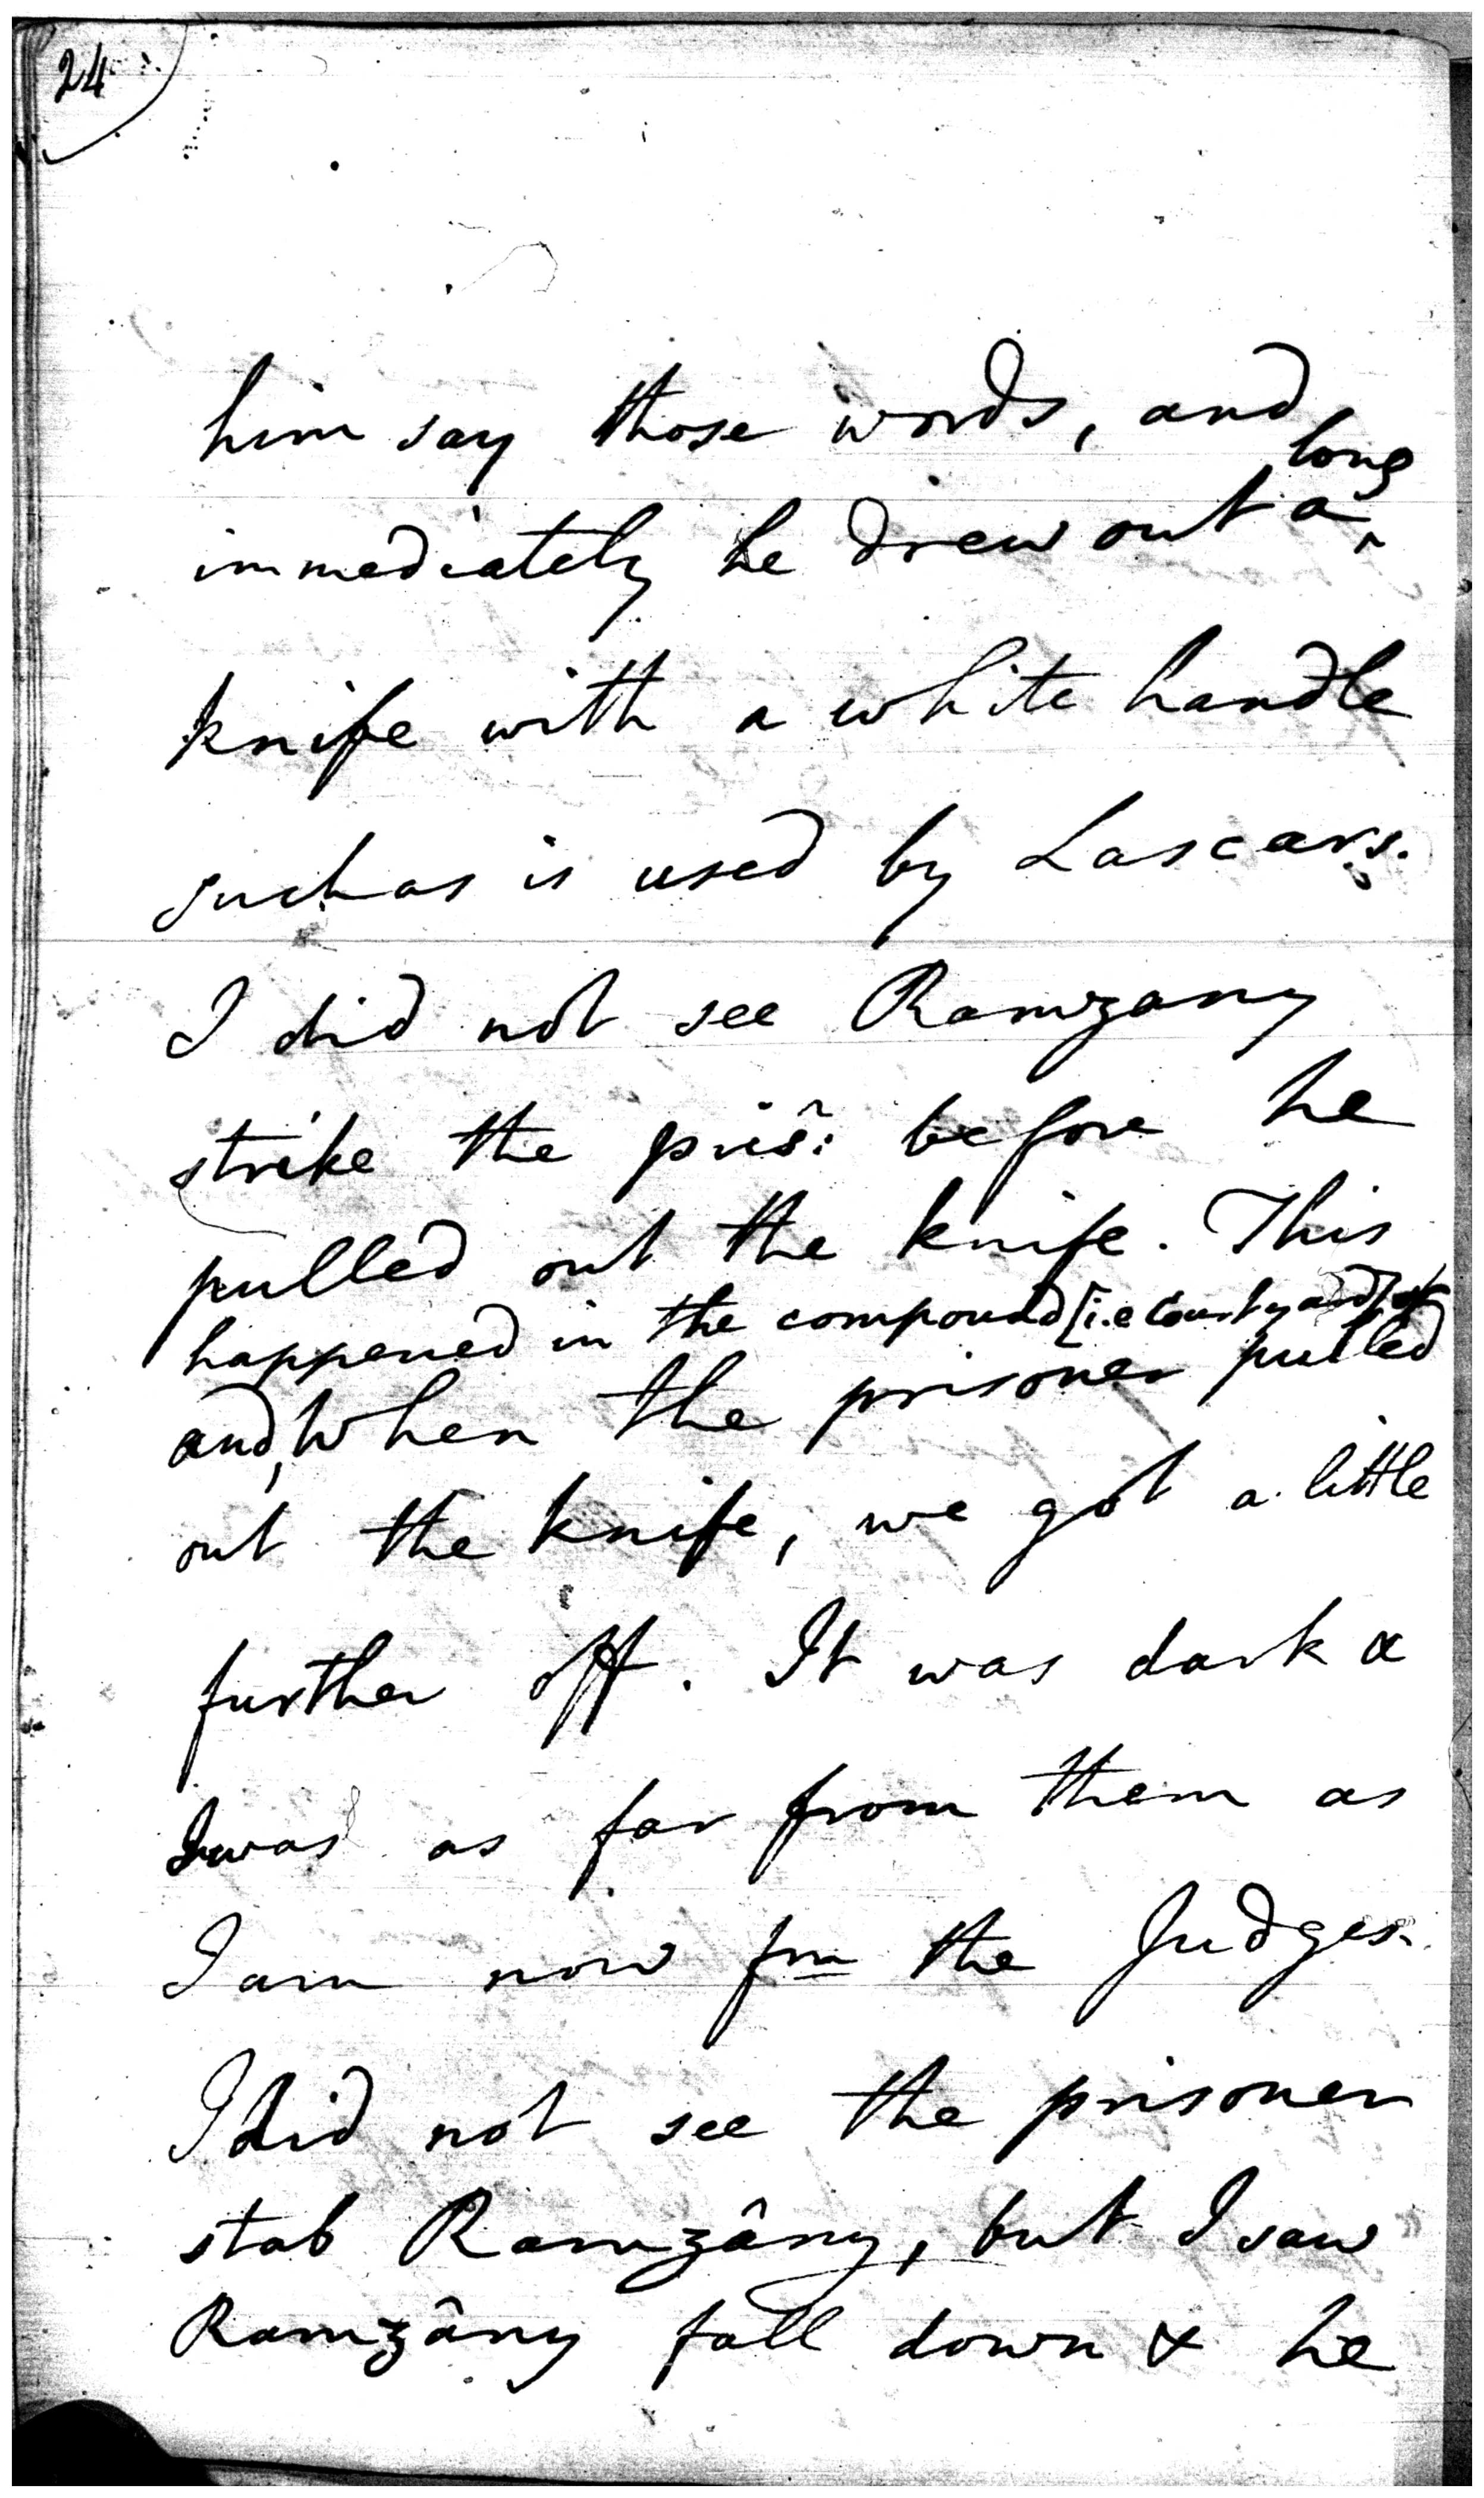 24
him say those words, and
long
immediately he drew out a ^
knife with a white handle
such as is used by Lascars.
I did not see Ramzany
strike the prisr: before he
pulled out the knife. This
happened in the compound [i.e Courtyard]
and, When the prisoner pulled
out the knife, we got a little
further off. It was dark &
I was as far from them as
I am now fm the Judges.
I did not see the prisoner
stab Ramzâny, but I saw
Ramzâny fall down & he